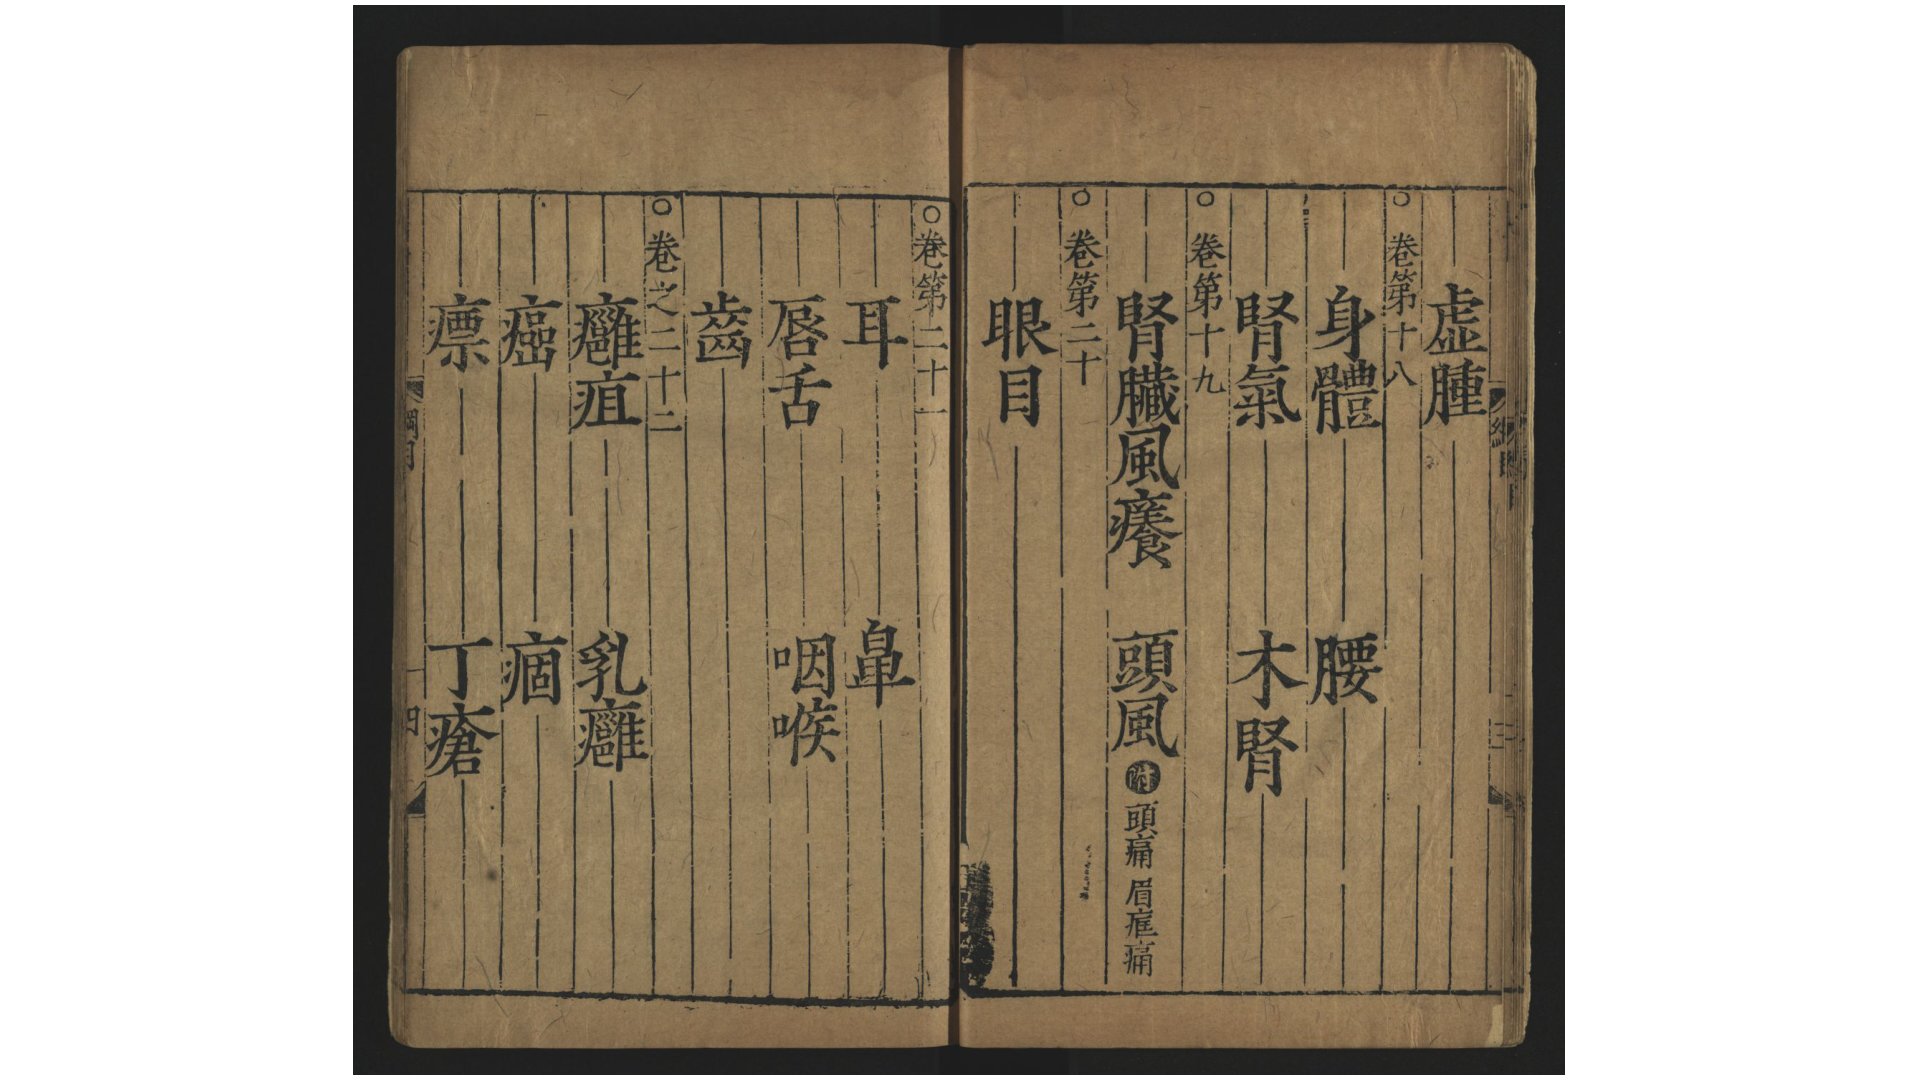 虚腫
○卷第十八
身體 腰
腎氣 木腎
○卷第十九
腎臟風癢 頭風 附 頭痛 眉眶痛
○卷第二十
眼目
○卷第二十一
耳 鼻
唇舌 咽喉
齒
○卷之二十二
癰疽 乳癰
癌 痼
瘭 丁瘡
綱目